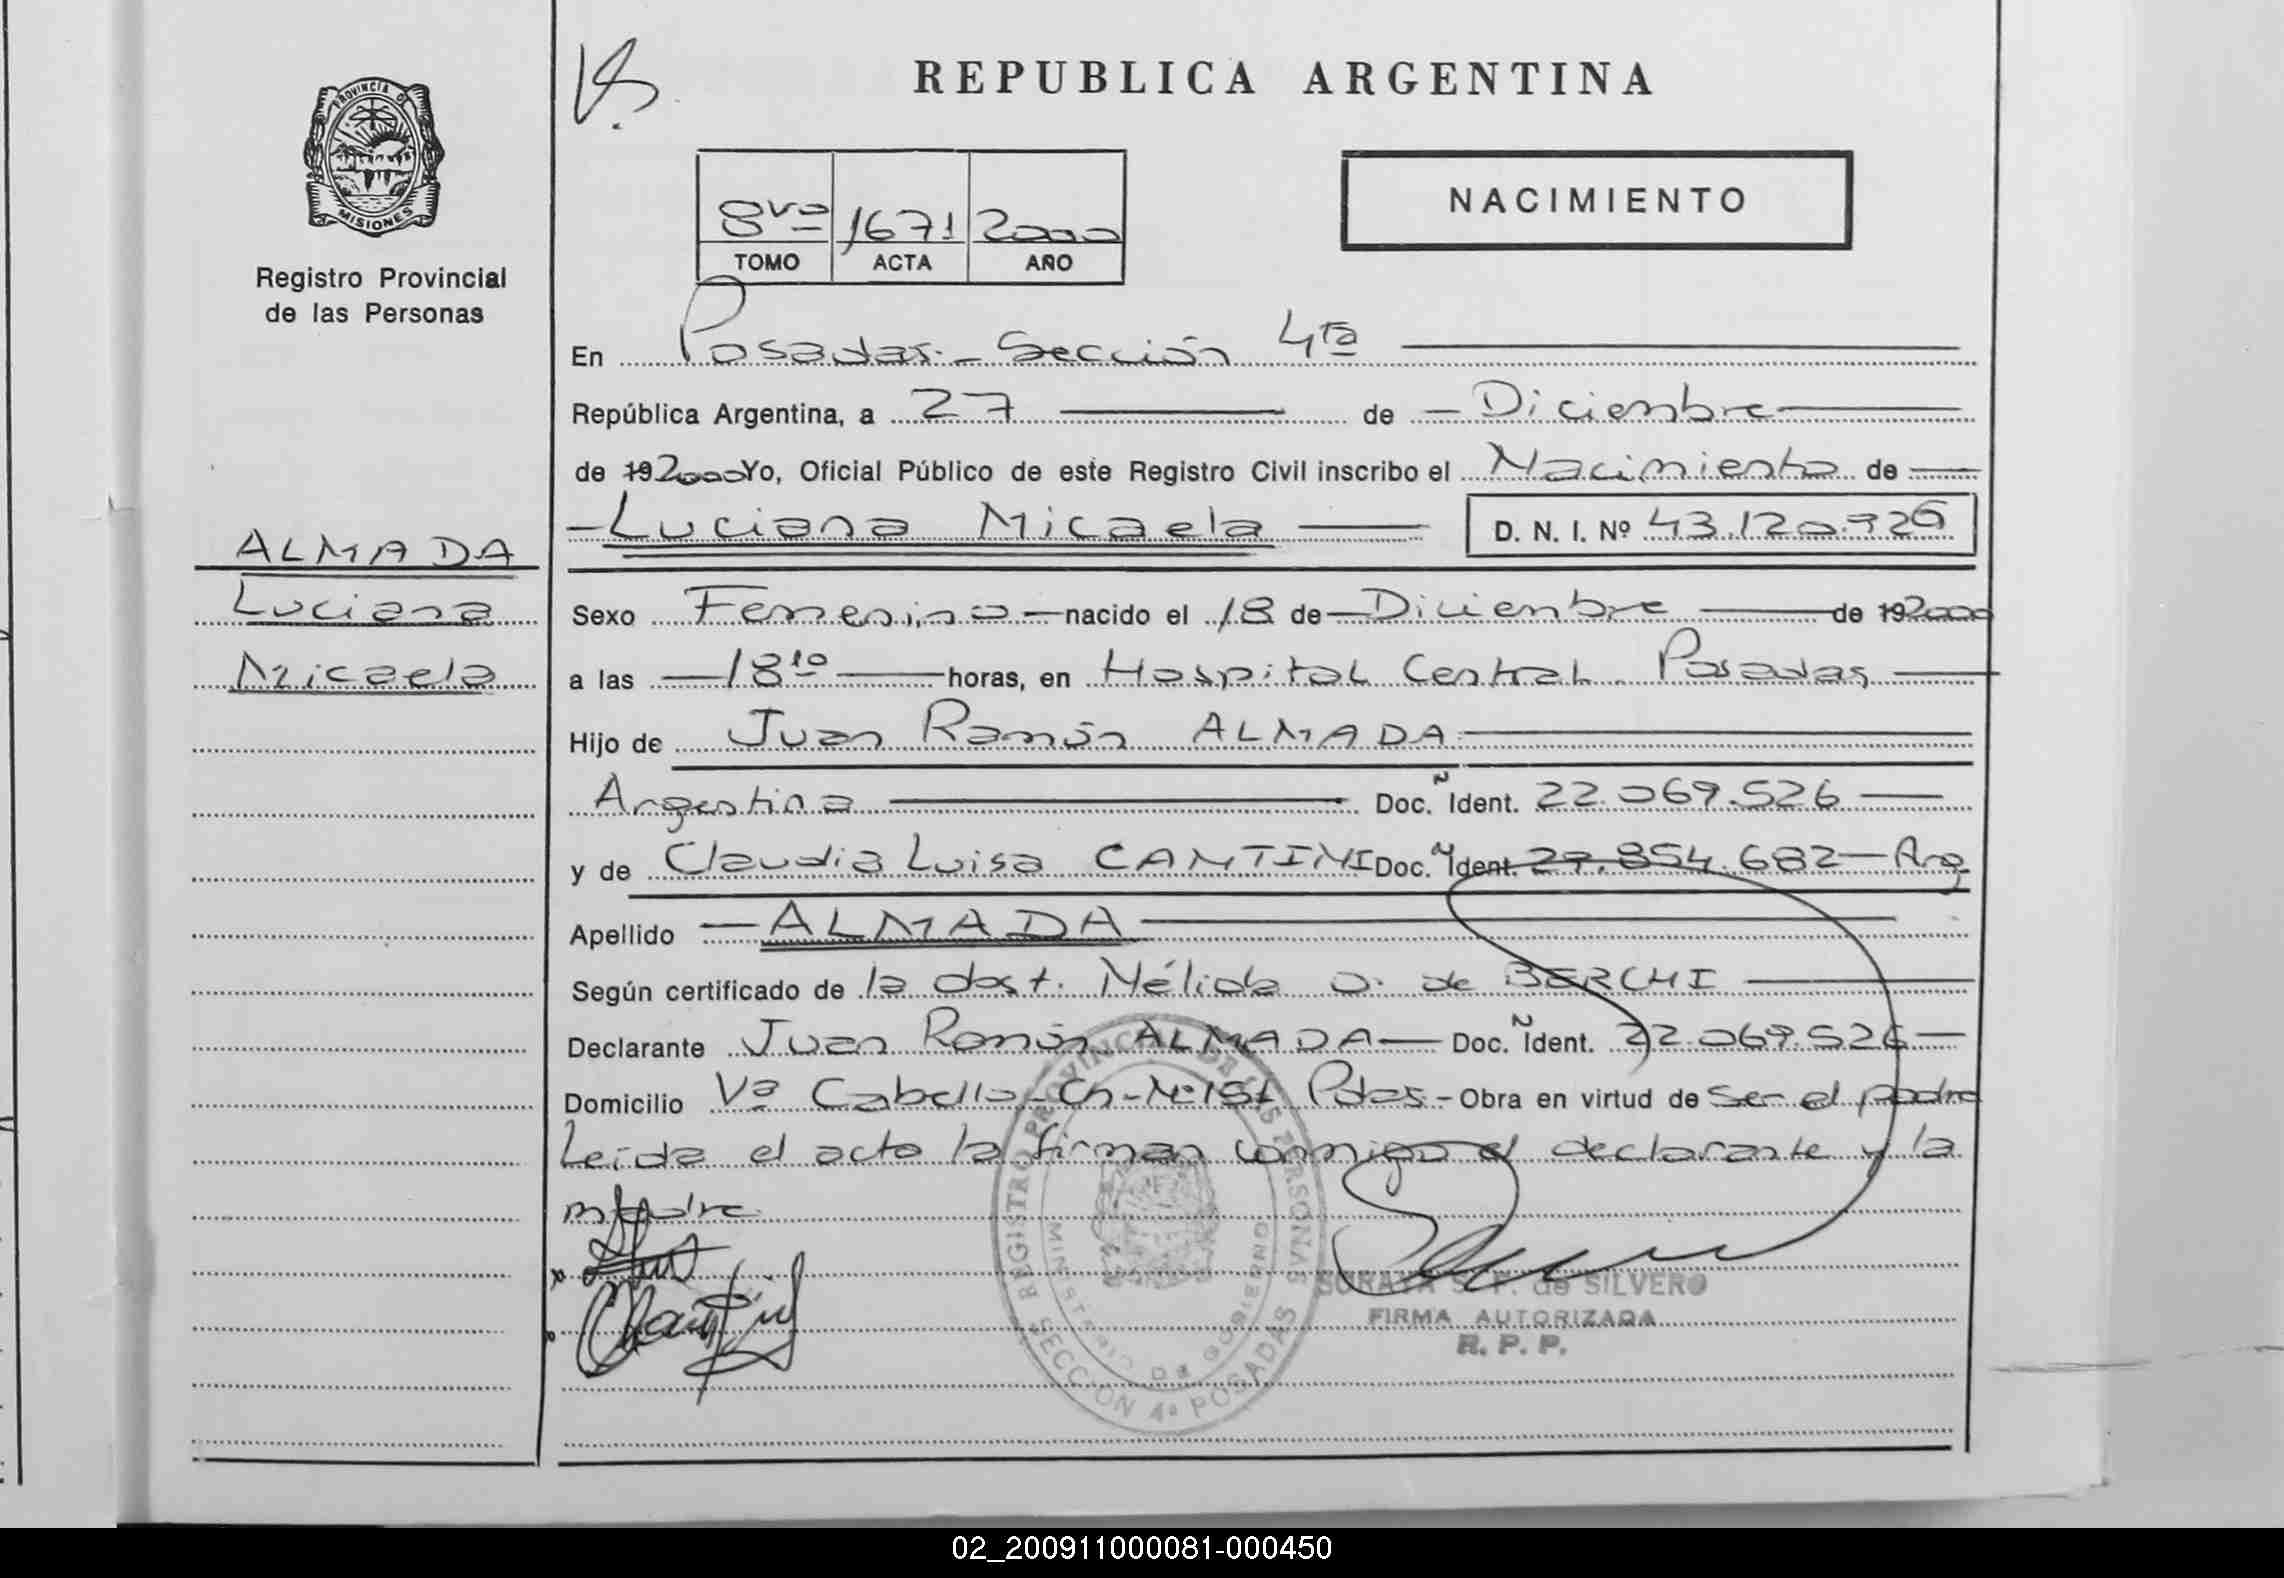 REPUBLICA ARGENTINA
PROVINCIA D MISIONES
Registro Provincial
de las Personas
NACIMIENTO
8vo 1671 2000
TOMO ACTA AÑO
En Posadas - Sección 4ta
República Argentina, a 27 de Diciembre
de 19 2000 Yo, Oficial Público de este Registro Civil inscribo el Nacimiento de
Luciana Micaela D. N. I. Nº 43.120.926
ALMADA
Luciana
Micaela
Sexo Femenino nacido el 18 de Diciembre de 19 2000
a las 18 10 horas, en Hospital Central Posadas
Hijo de Juan Ramón ALMADA
Argentina Doc. Ñ Ident. 22.069.526
y de Claudia Luisa CANTINI Doc. Ñ Ident. 27.854.682 - Arg
Apellido ALMADA
Según certificado de la obst. Nélida O. de BERCHI
Declarante Juan Ramón ALMADA - Doc. Ñ Ident. 22.069.526
Domicilio Vª Cabello - Ch - Nº 181 Pdas - Obra en virtud de ser el padre
Leída el acta la firman conmigo el declarante y la
madre
REGISTRO PROVINCIAL DE LAS PERSONAS
MINISTERIO DE GOBIERNO
SECCION 4ª POSADAS
SORAYA S. F. de SILVERO
FIRMA AUTORIZADA
R. P. P.
02_200911000081-000450